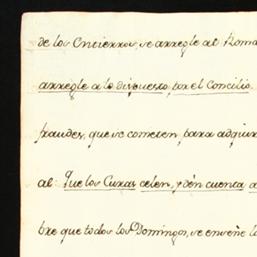 de los Entierros, se arregle al Roma
arregle a lo dispuesto, por el Concilio
fraudes, que se cometen, para adqui
al: Que los Curas celen, y dèn cuenta a
bre que todos los Domingos, se enseñe la